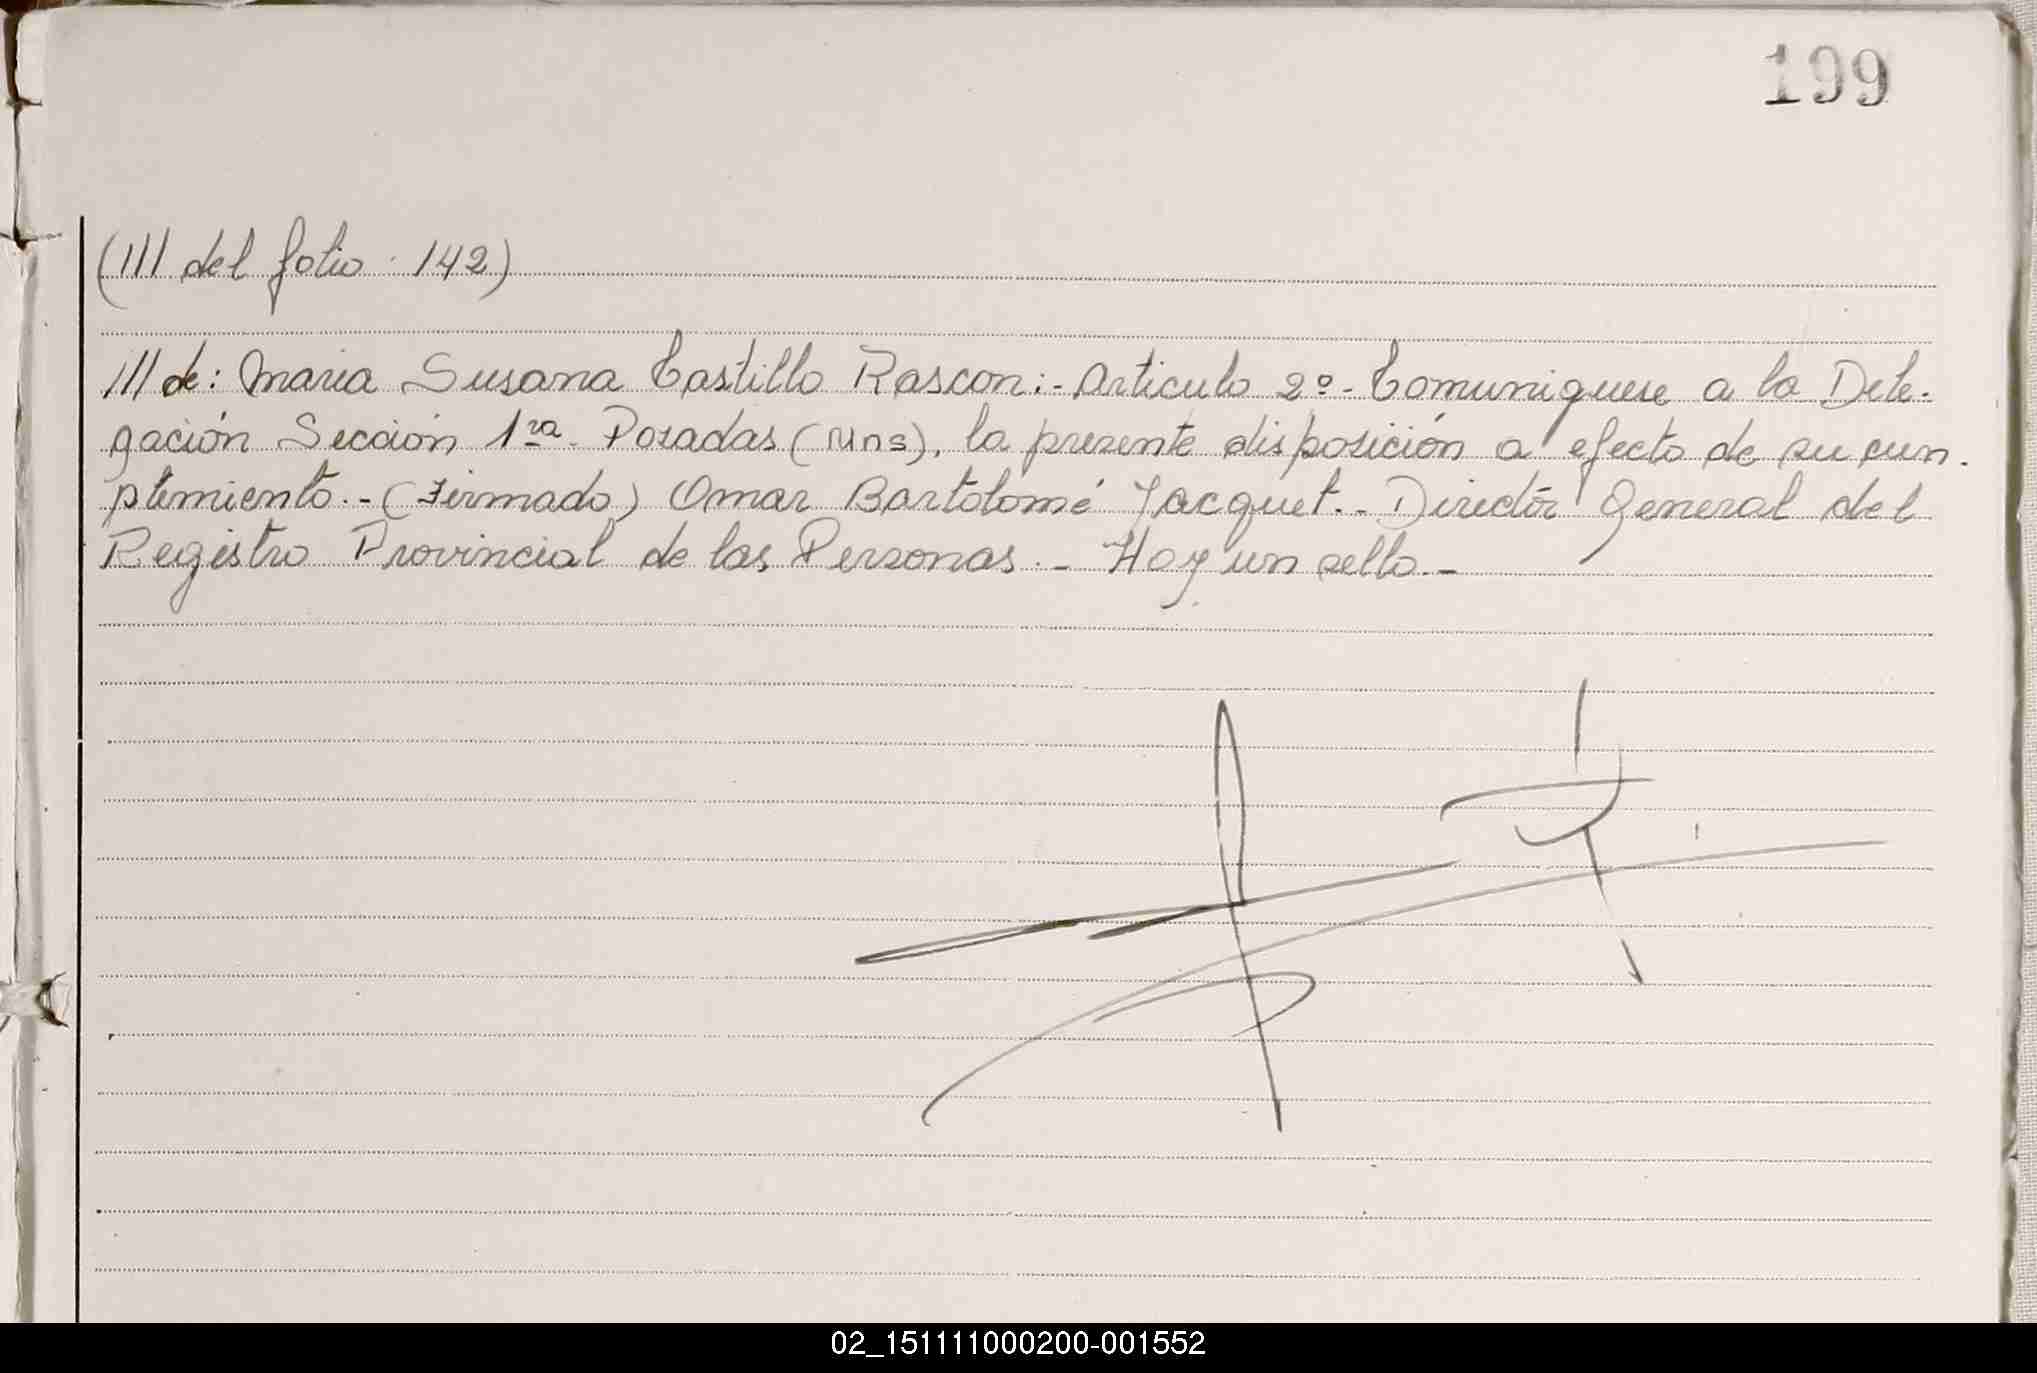 199
(/// del folio 142)
/// de: Maria Susana Castillo Rascon:- Articulo 2º- Comuniquese a la Dele-
gación Sección 1ra. Posadas (Mns), la presente disposición a efecto de su cum-
plimiento.- (Firmado) Omar Bartolomé Jacquet.- Director General del
Registro Provincial de las Personas.- Hay un sello.-
02_151111000200-001552